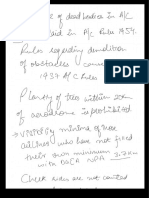 of dead bodies in A/C
laid in A/C Rule 1954.
Rules regarding demolition
of obstacles
1937 A/C Rules
Planting of tree within 20m
of aerodrome is prohibited
minima of these
airlines who have not filed
their own minimum
with DGCA
Check rides are not counted